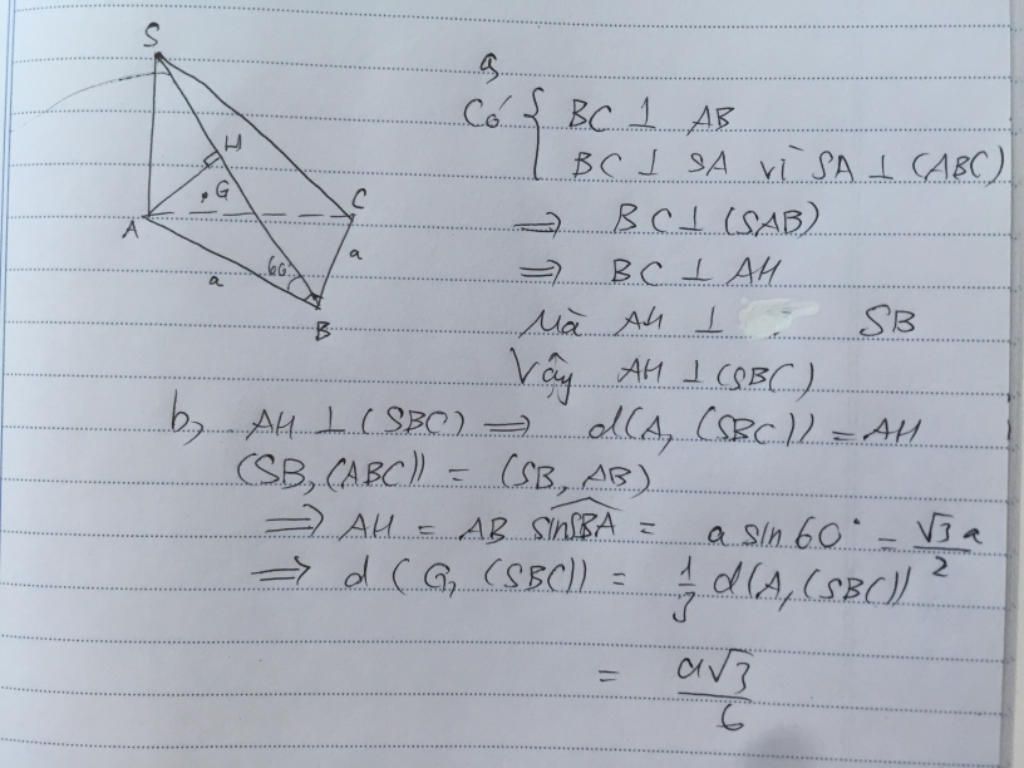 S
H
G
A
C
60°
a
a
B
a,
Có { BC ⊥ AB
BC ⊥ SA vì SA ⊥ (ABC)
⇒ BC ⊥ (SAB)
⇒ BC ⊥ AH
Mà AH ⊥ SB
Vậy AH ⊥ (SBC)
b, AH ⊥ (SBC) ⇒ d(A, (SBC)) = AH
(SB, (ABC)) = (SB, AB)
⇒ AH = AB sin\widehat{SBA} = a sin 60° = √3a/2
⇒ d(G, (SBC)) = 1/3 d(A, (SBC))
= a√3/6